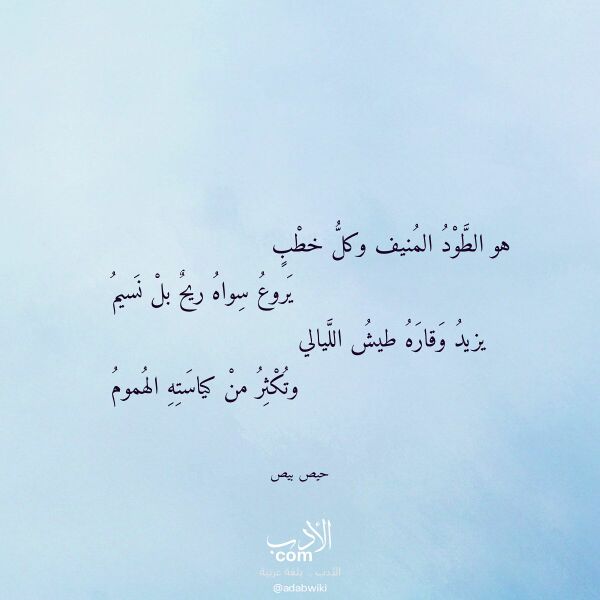 هو الطَّوْدُ المُنيف وكلُّ خطْبٍ
يَروعُ سِواهُ ريحٌ بلْ نَسيمُ
يزيدُ وَقارَهُ طيشُ اللَّيالي
وتُكْثِرُ منْ كياسَتِهِ الهُمومُ
حيص بيص
الأدب
com
الأدب .. بلغة عربية
@adabwiki